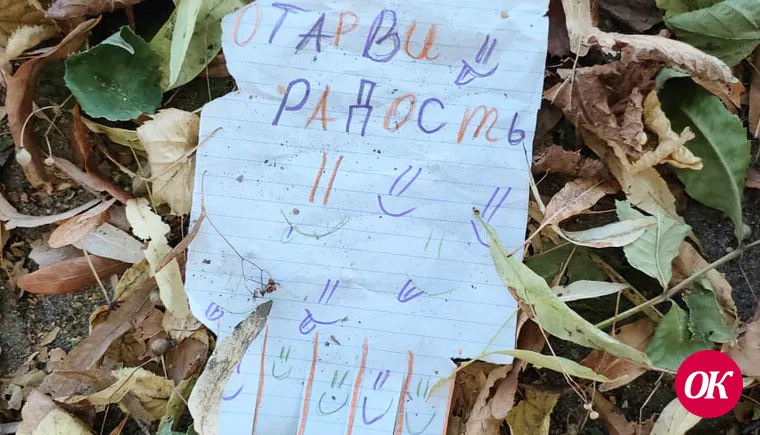 ОТАРВИ
РАДОСТЬ
OK